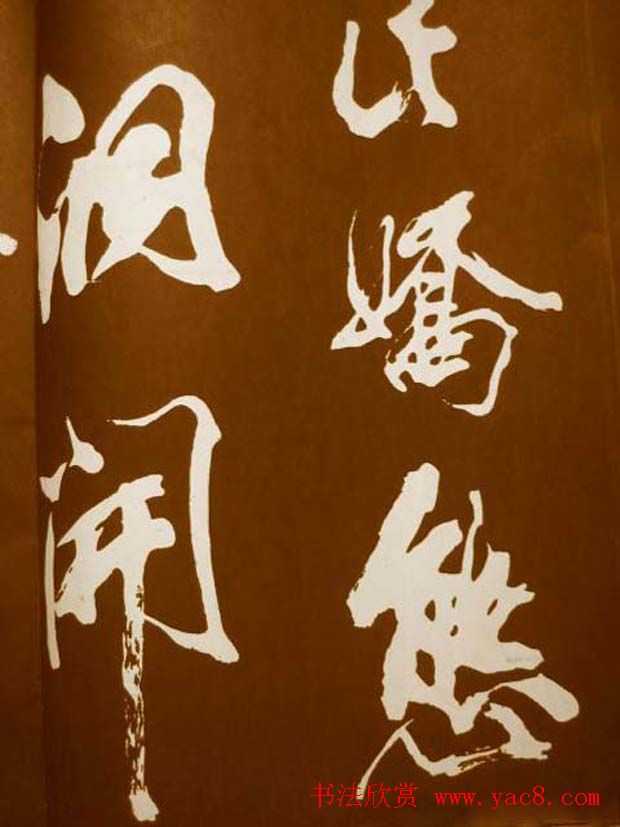 嬌態
洞開
书法欣赏 www.yac8.com